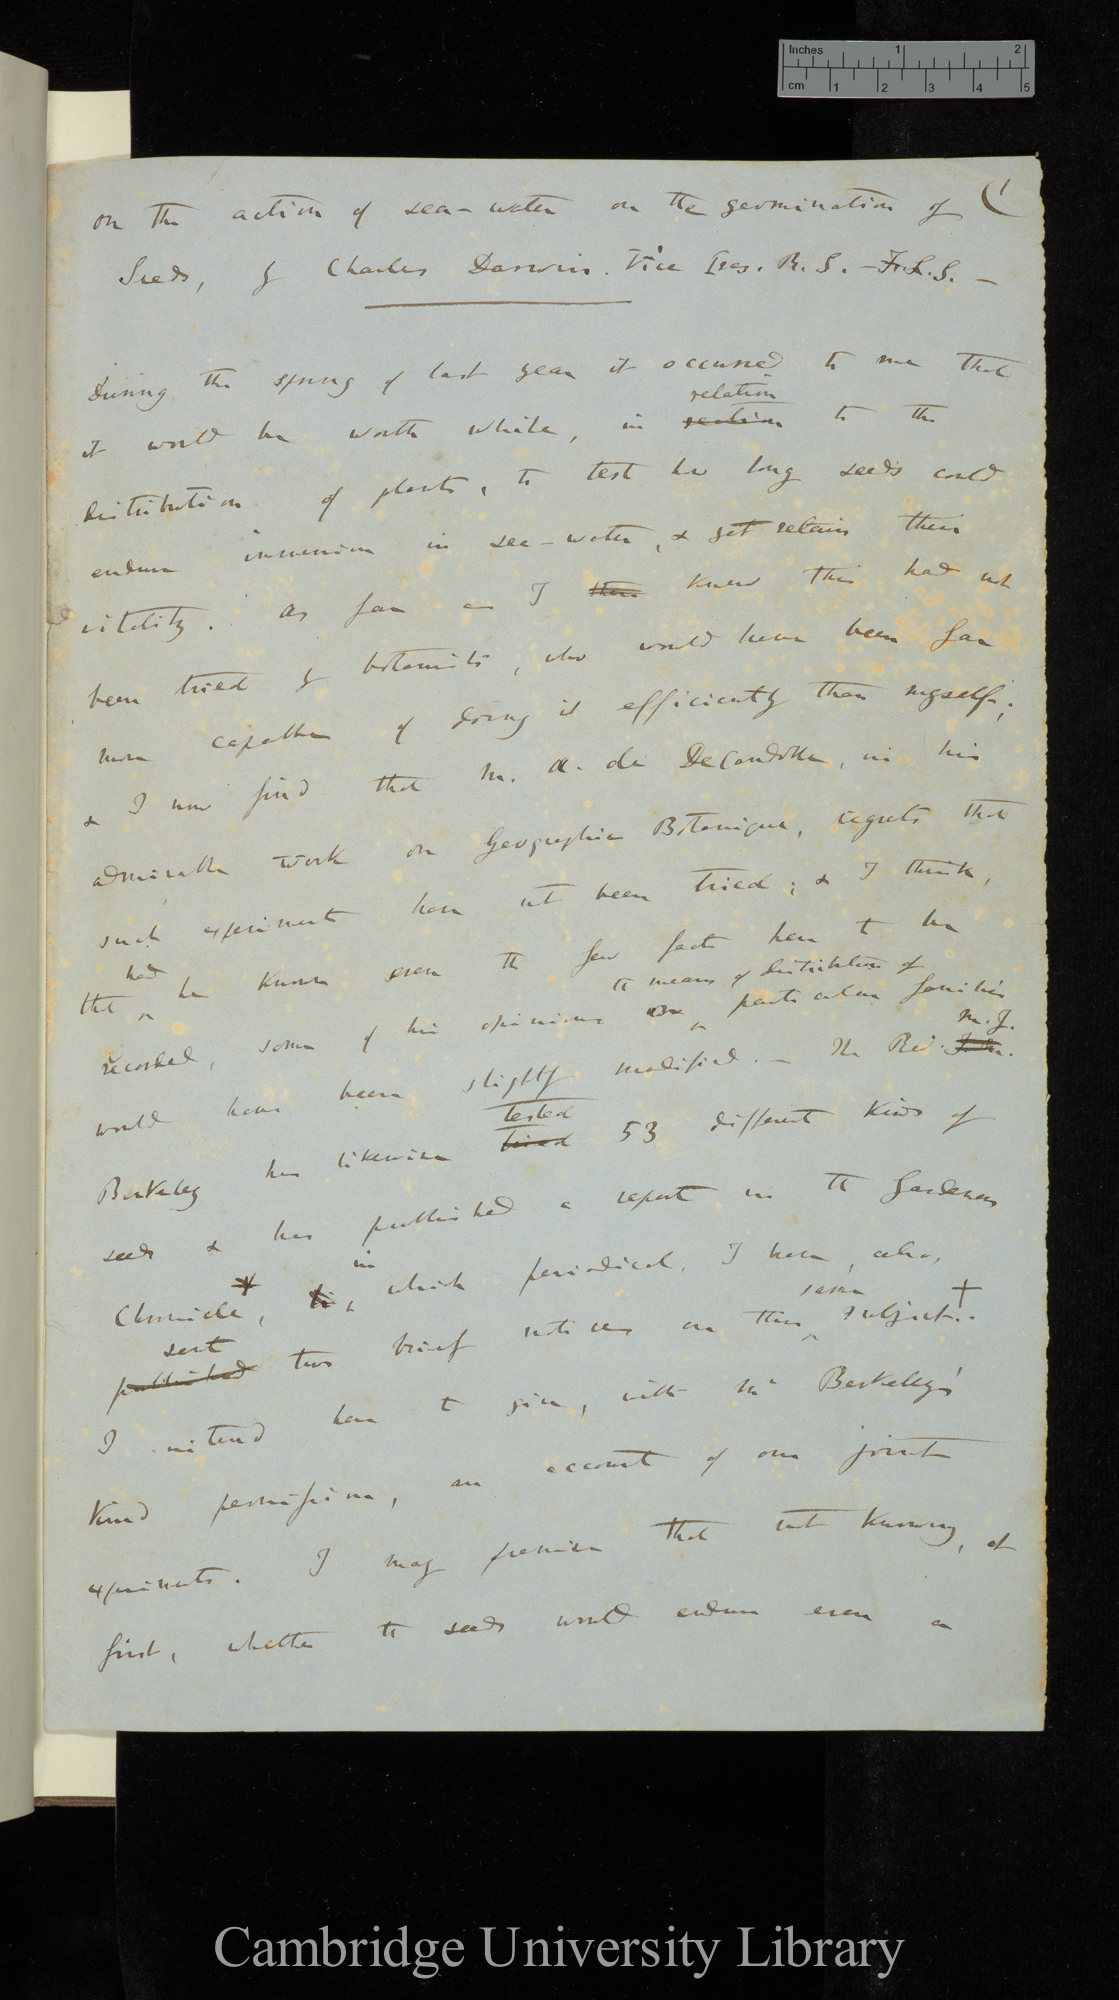 Inches 1 2
cm 1 2 3 4 5
(1
On the action of sea-water on the germination of
Seeds, by Charles Darwin. Vice Pres. R. S. – F.L.S. –
During the spring of last year it occurred to me that
relation
it would be worth while, in relation to the
distribution of plants, to test how long seeds could
endure immersion in sea-water, & yet retain their
vitality. As far as I then knew this had not
been tried by botanists, who would have been far
more capable of doing it efficiently than myself;
& I now find that M. A. de DeCandolle, in his
admirable work on Geographie Botanique, regrets that
such experiment have not been tried; & I think,
had
that ^ he known even the few facts here to be
the means of distribution of
recorded, some of his opinions on ^ particular families
M. J.
would have been slightly modified. – The Rev. John.
tested
Berkeley has likewise tried 53 different kinds of
seeds & has published a report in the Gardeners
in
Chronicle*, ^ which periodical, I have, also,
same +
sent
published two brief notices on this ^ subject..
I intend here to give, with Mr Berkeley's
kind permission, an account of our joint
experiments. I may premise that not knowing, at
first, whether the seeds would endure even a
Cambridge University Library